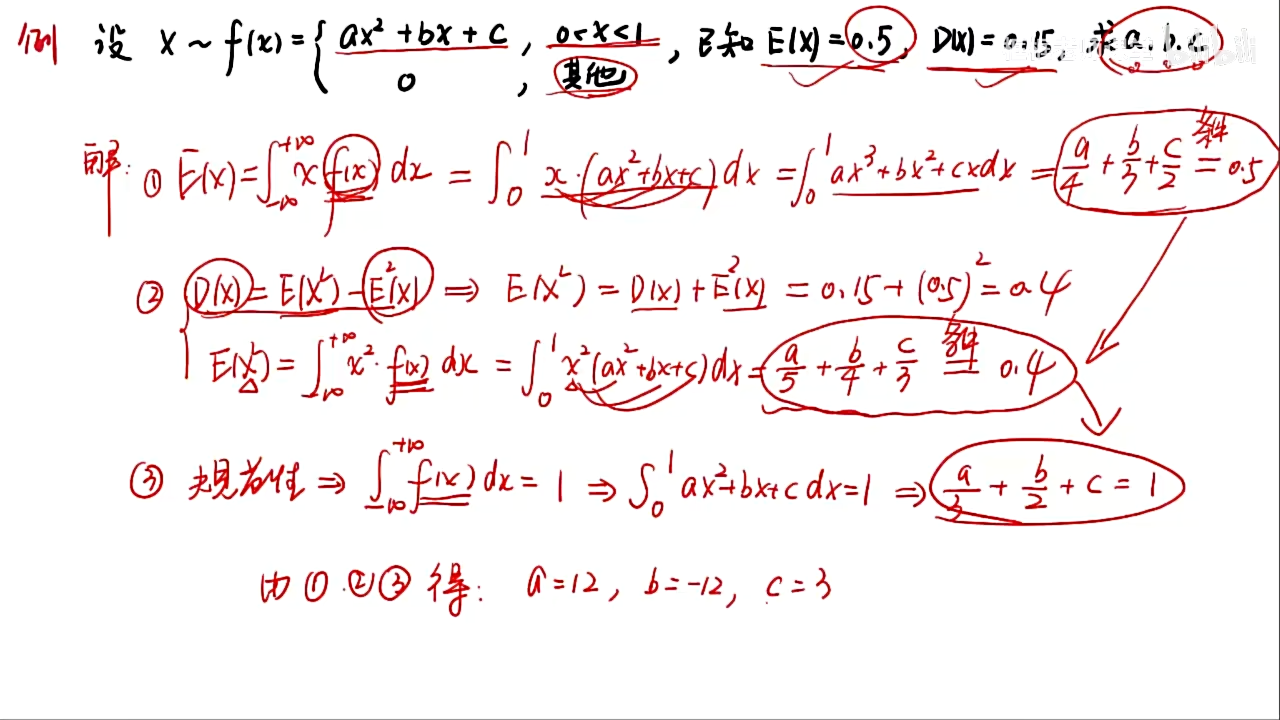 例 设 X ~ f(x) = { ax² + bx + c , 0<x<1 , 已知 E(X) = 0.5, D(X) = 0.15, 求 a, b, c.
0 , 其他
解: ① E(X) = ∫_{-∞}^{+∞} x f(x) dx = ∫_0^1 x·(ax²+bx+c) dx = ∫_0^1 ax³+bx²+cx dx = a/4 + b/3 + c/2 条件= 0.5
② { D(X) = E(X²) - E²(X) ⇒ E(X²) = D(X) + E²(X) = 0.15 + (0.5)² = 0.4
E(X²) = ∫_{-∞}^{+∞} x²·f(x) dx = ∫_0^1 x²(ax²+bx+c) dx = a/5 + b/4 + c/3 条件= 0.4
③ 规范性 ⇒ ∫_{-∞}^{+∞} f(x) dx = 1 ⇒ ∫_0^1 ax²+bx+c dx = 1 ⇒ a/3 + b/2 + c = 1
由 ① ② ③ 得: a = 12, b = -12, c = 3